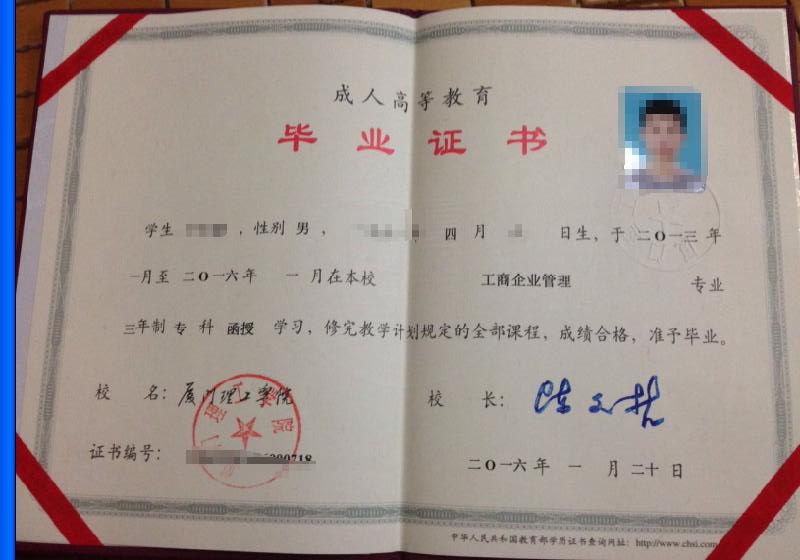 成人高等教育
毕业证书
学生 ，性别 男， 四 月 日生，于 二〇一三 年
一月至 二〇一六年 一 月在本校 工商企业管理 专业
三年制 专 科 函授 学习，修完教学计划规定的全部课程，成绩合格，准予毕业。
校 名：厦门理工学院 校 长：
证书编号： 200718
二〇一六年 一 月 二十 日
中华人民共和国教育部学历证书查询网址：http://www.chsi.com